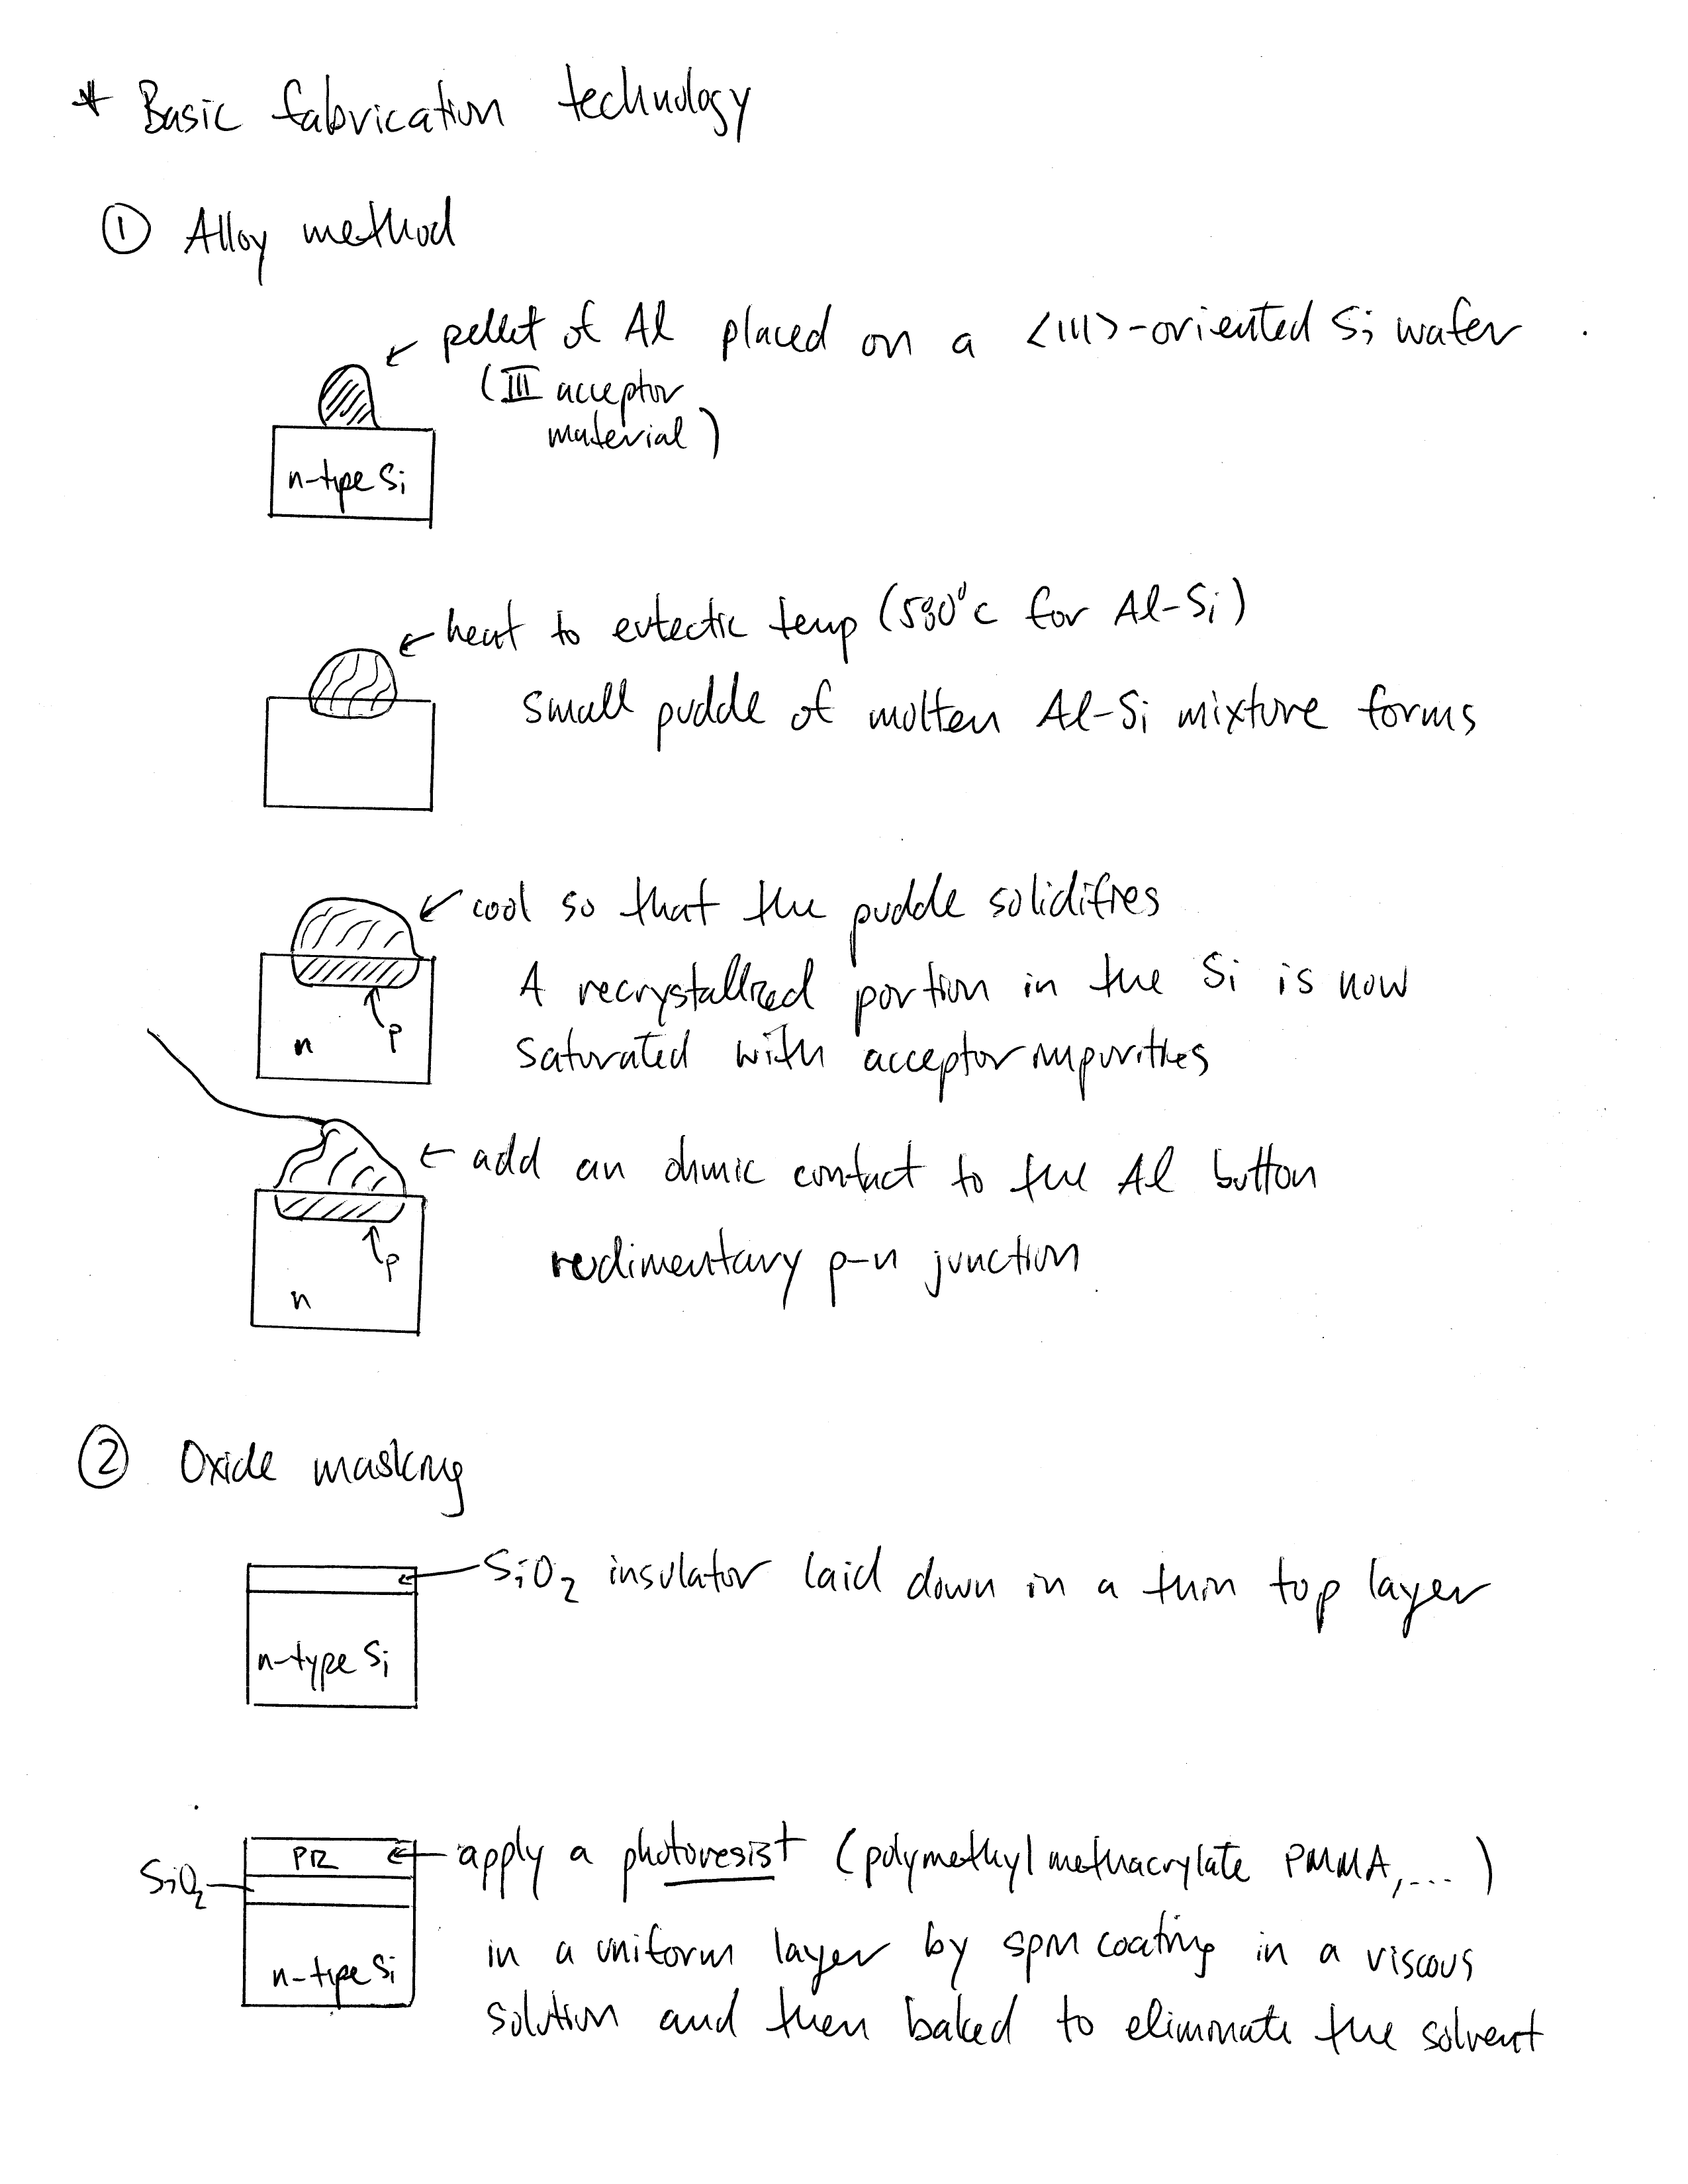 * Basic fabrication technology
① Alloy method
pellet of Al placed on a <111>-oriented Si wafer
(III acceptor
material)
n-type Si
heat to eutectic temp (580°C for Al-Si)
small puddle of molten Al-Si mixture forms
cool so that the puddle solidifies
A recrystallized portion in the Si is now
saturated with acceptor impurities
n p
add an ohmic contact to the Al button
rudimentary p-n junction
p
n
② Oxide masking
SiO2 insulator laid down in a thin top layer
n-type Si
PR apply a photoresist (polymethyl methacrylate PMMA,...)
SiO2
in a uniform layer by spin coating in a viscous
n-type Si
solution and then baked to eliminate the solvent